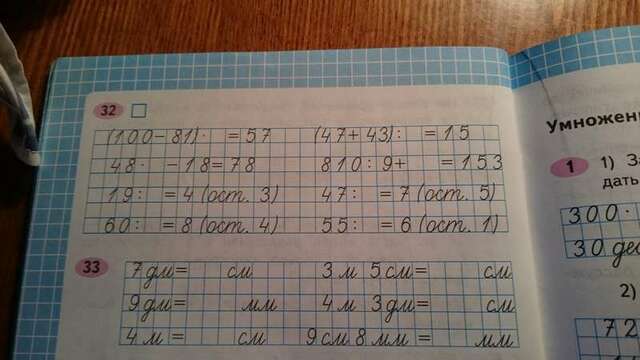 32
(100-81)· =57 (47+43): =15
48· -18=78 810:9+ =153
19: =4 (ост. 3) 47: =7 (ост. 5)
60: =8 (ост. 4) 55: =6 (ост. 1)
33
7 дм= см 3 м 5 см= см
9 дм= мм 4 м 3 дм= см
4 м = см 9 см 8 мм = мм
Умножени
1 1) З
дать
300·
30 дес
2)
72